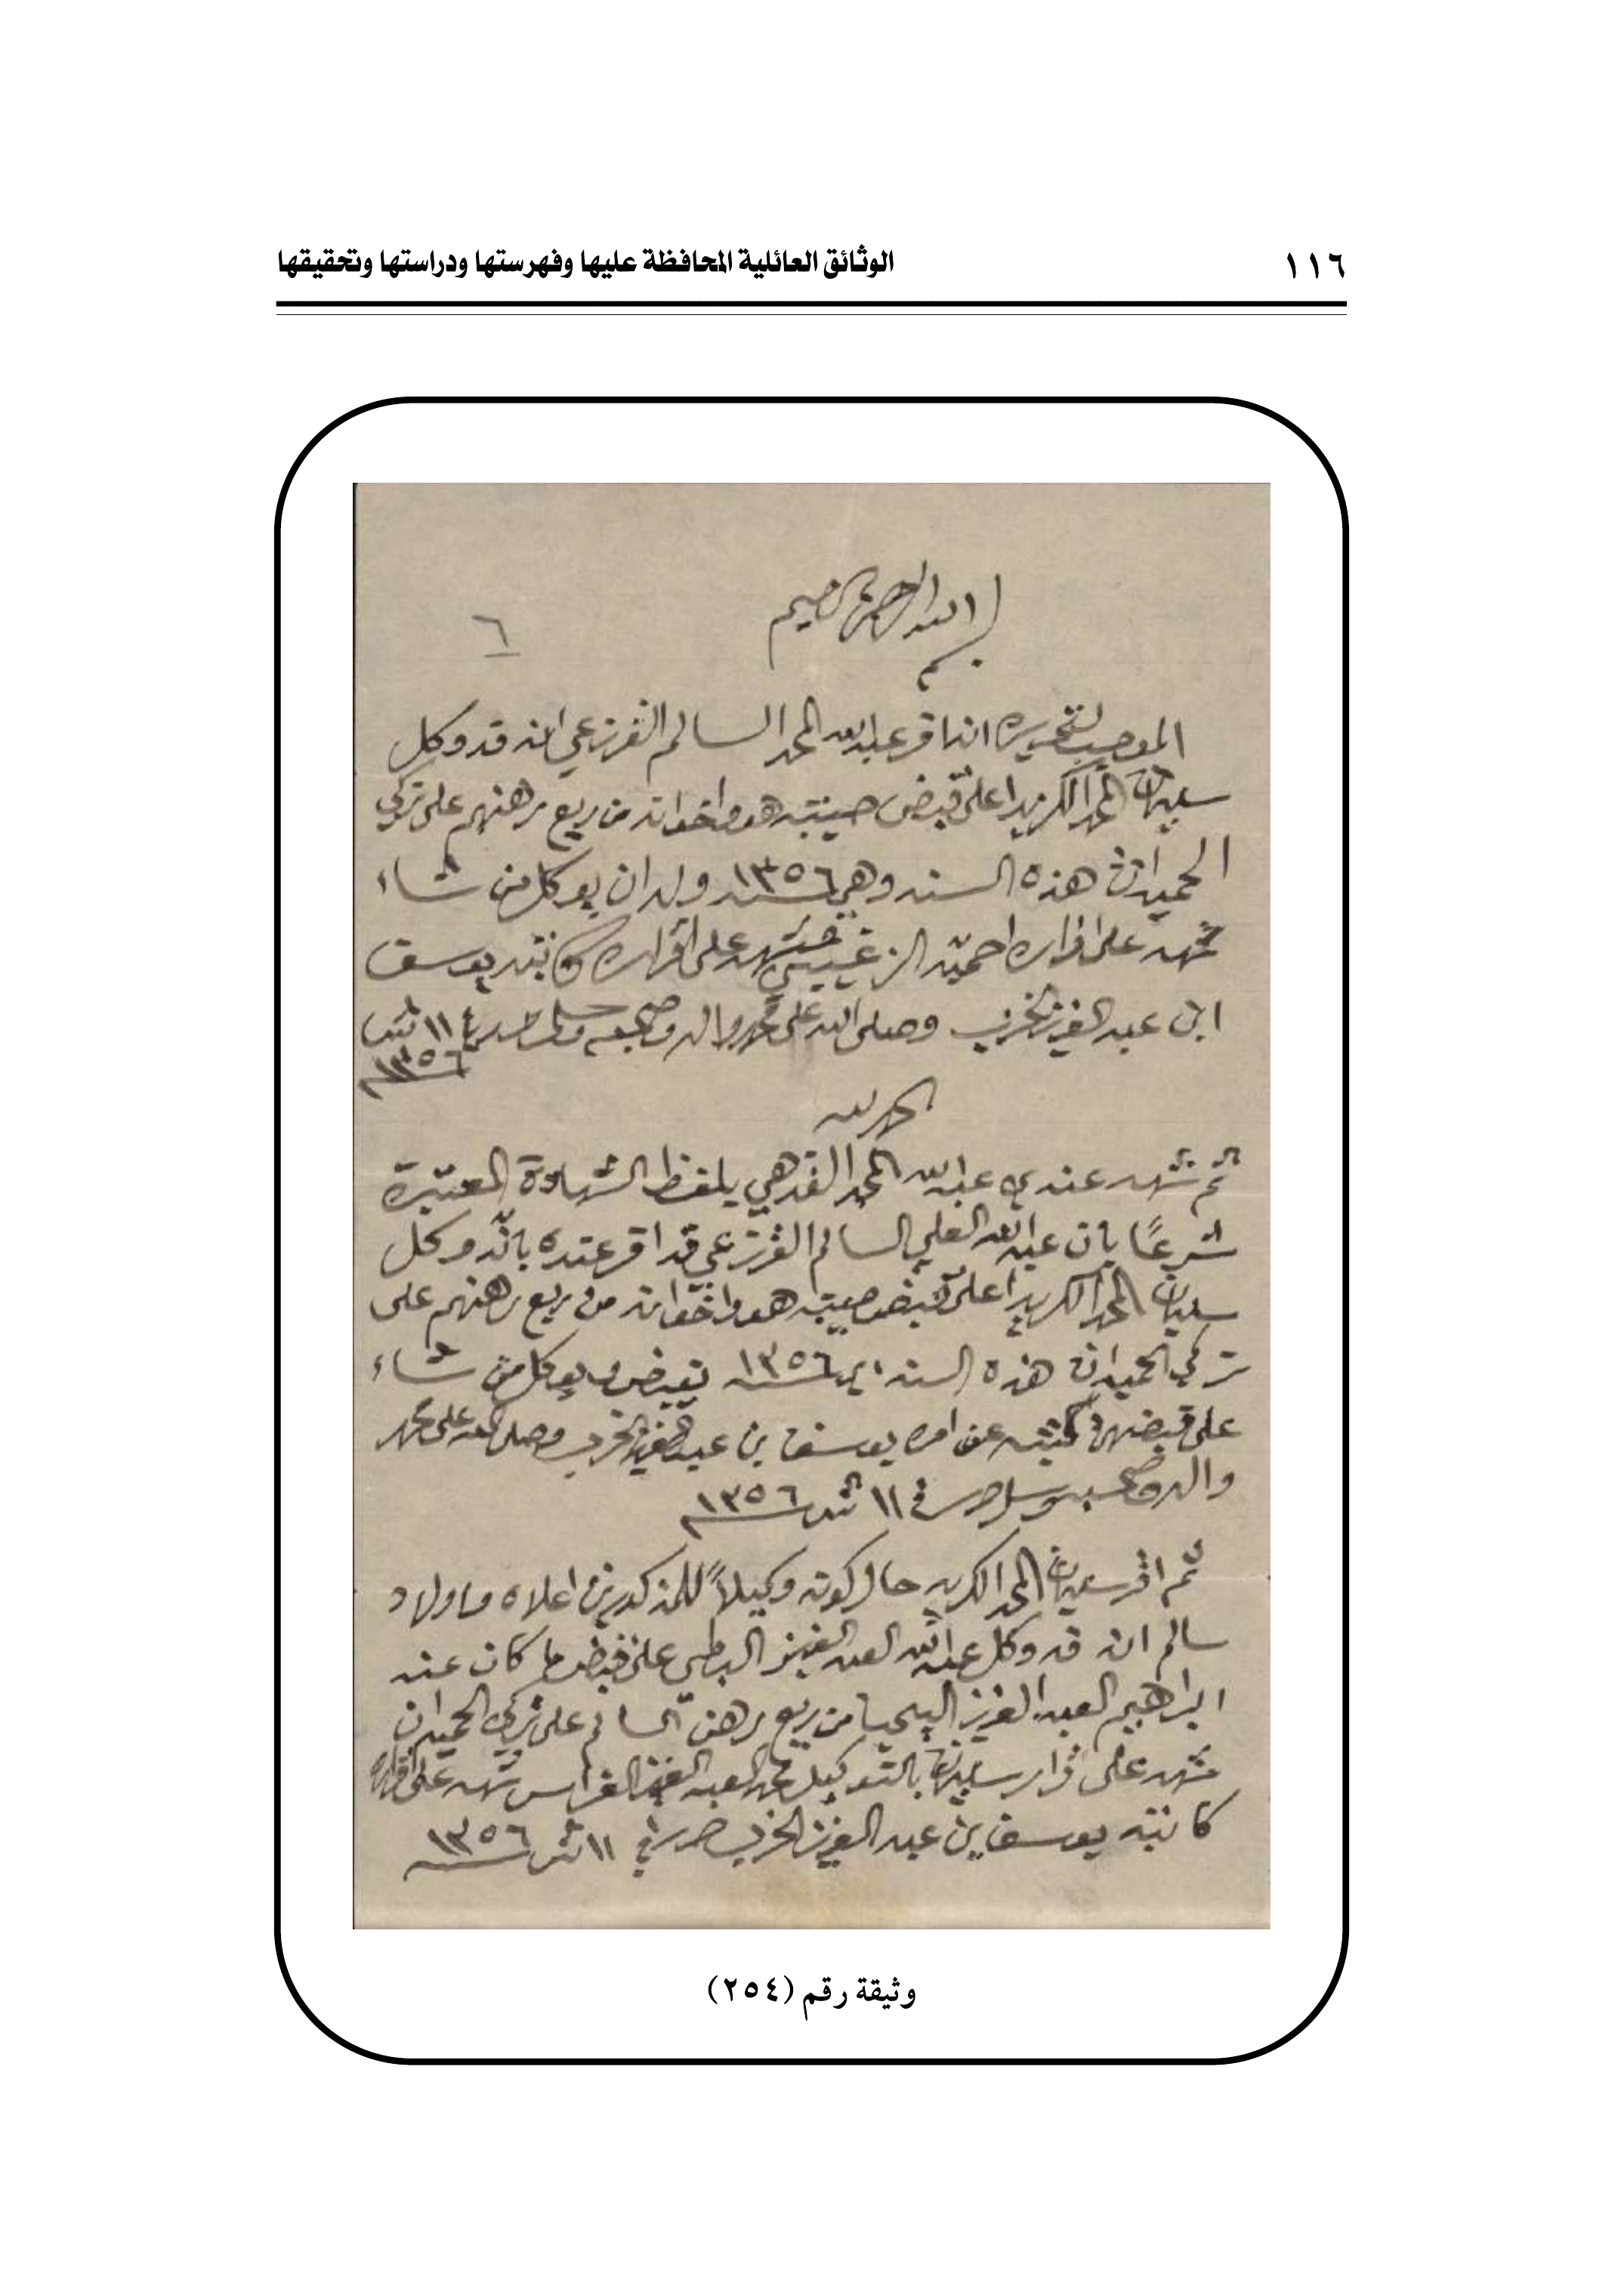 ١١٦
الوثائق العائلية المحافظة عليها وفهرستها ودراستها وتحقيقها
بسم الله الرحمن الرحيم
٦
الموجب لتحريره انه اقر عبدالله المحمد السالم القرزعي انه قد وكل
سليمان المحمد الكريدا على قبض صيبته هو واخوانه من ريع رهنهم على تركي
الحميدان هذه السنه وهي سنه ١٣٥٦ وله ان يوكل من شاء
شهد على اقراره احميد الزغيبي وشهد على اقراره كاتبه يوسف
ابن عبد العزيز الخرب وصلى الله على محمد واله وصحبه وسلم حرر في ١١
١٣٥٦
الحمد لله
ثم شهد عندي عبدالله المحمد القدهي بلفظ الشهادة المعتبرة
شرعًا بان عبدالله العلي السالم القرزعي قد اقر عنده بانه وكل
سليمان المحمد الكريدا على قبض صيبته هو واخوانه من ريع رهنهم على
تركي الحميدان هذه السنه اي سنه ١٣٥٦ يقبض ويوكل من شاء
على قبضها كتبته عن امره يوسف بن عبد العزيز الخرب وصلى الله على محمد
واله وصحبه وسلم حرر في ١١ سنه ١٣٥٦
ثم اقر سليمان المحمد الكريدا حال كونه وكيلاً للمذكورين اعلاه اولاد
سالم انه قد وكل عبدالله العبد العزيز البطي على قبض ما كان عند
ابراهيم العبد العزيز اليحيا من ريع رهن السالم على تركي الحميدان
شهد على اقرار سليمان بالتوكيل محمد العبد العزيز الفراس شهد على اقراره
كاتبه يوسف بن عبد العزيز الخرب حرر في ١١ سنه ١٣٥٦
وثيقة رقم (٢٥٤)